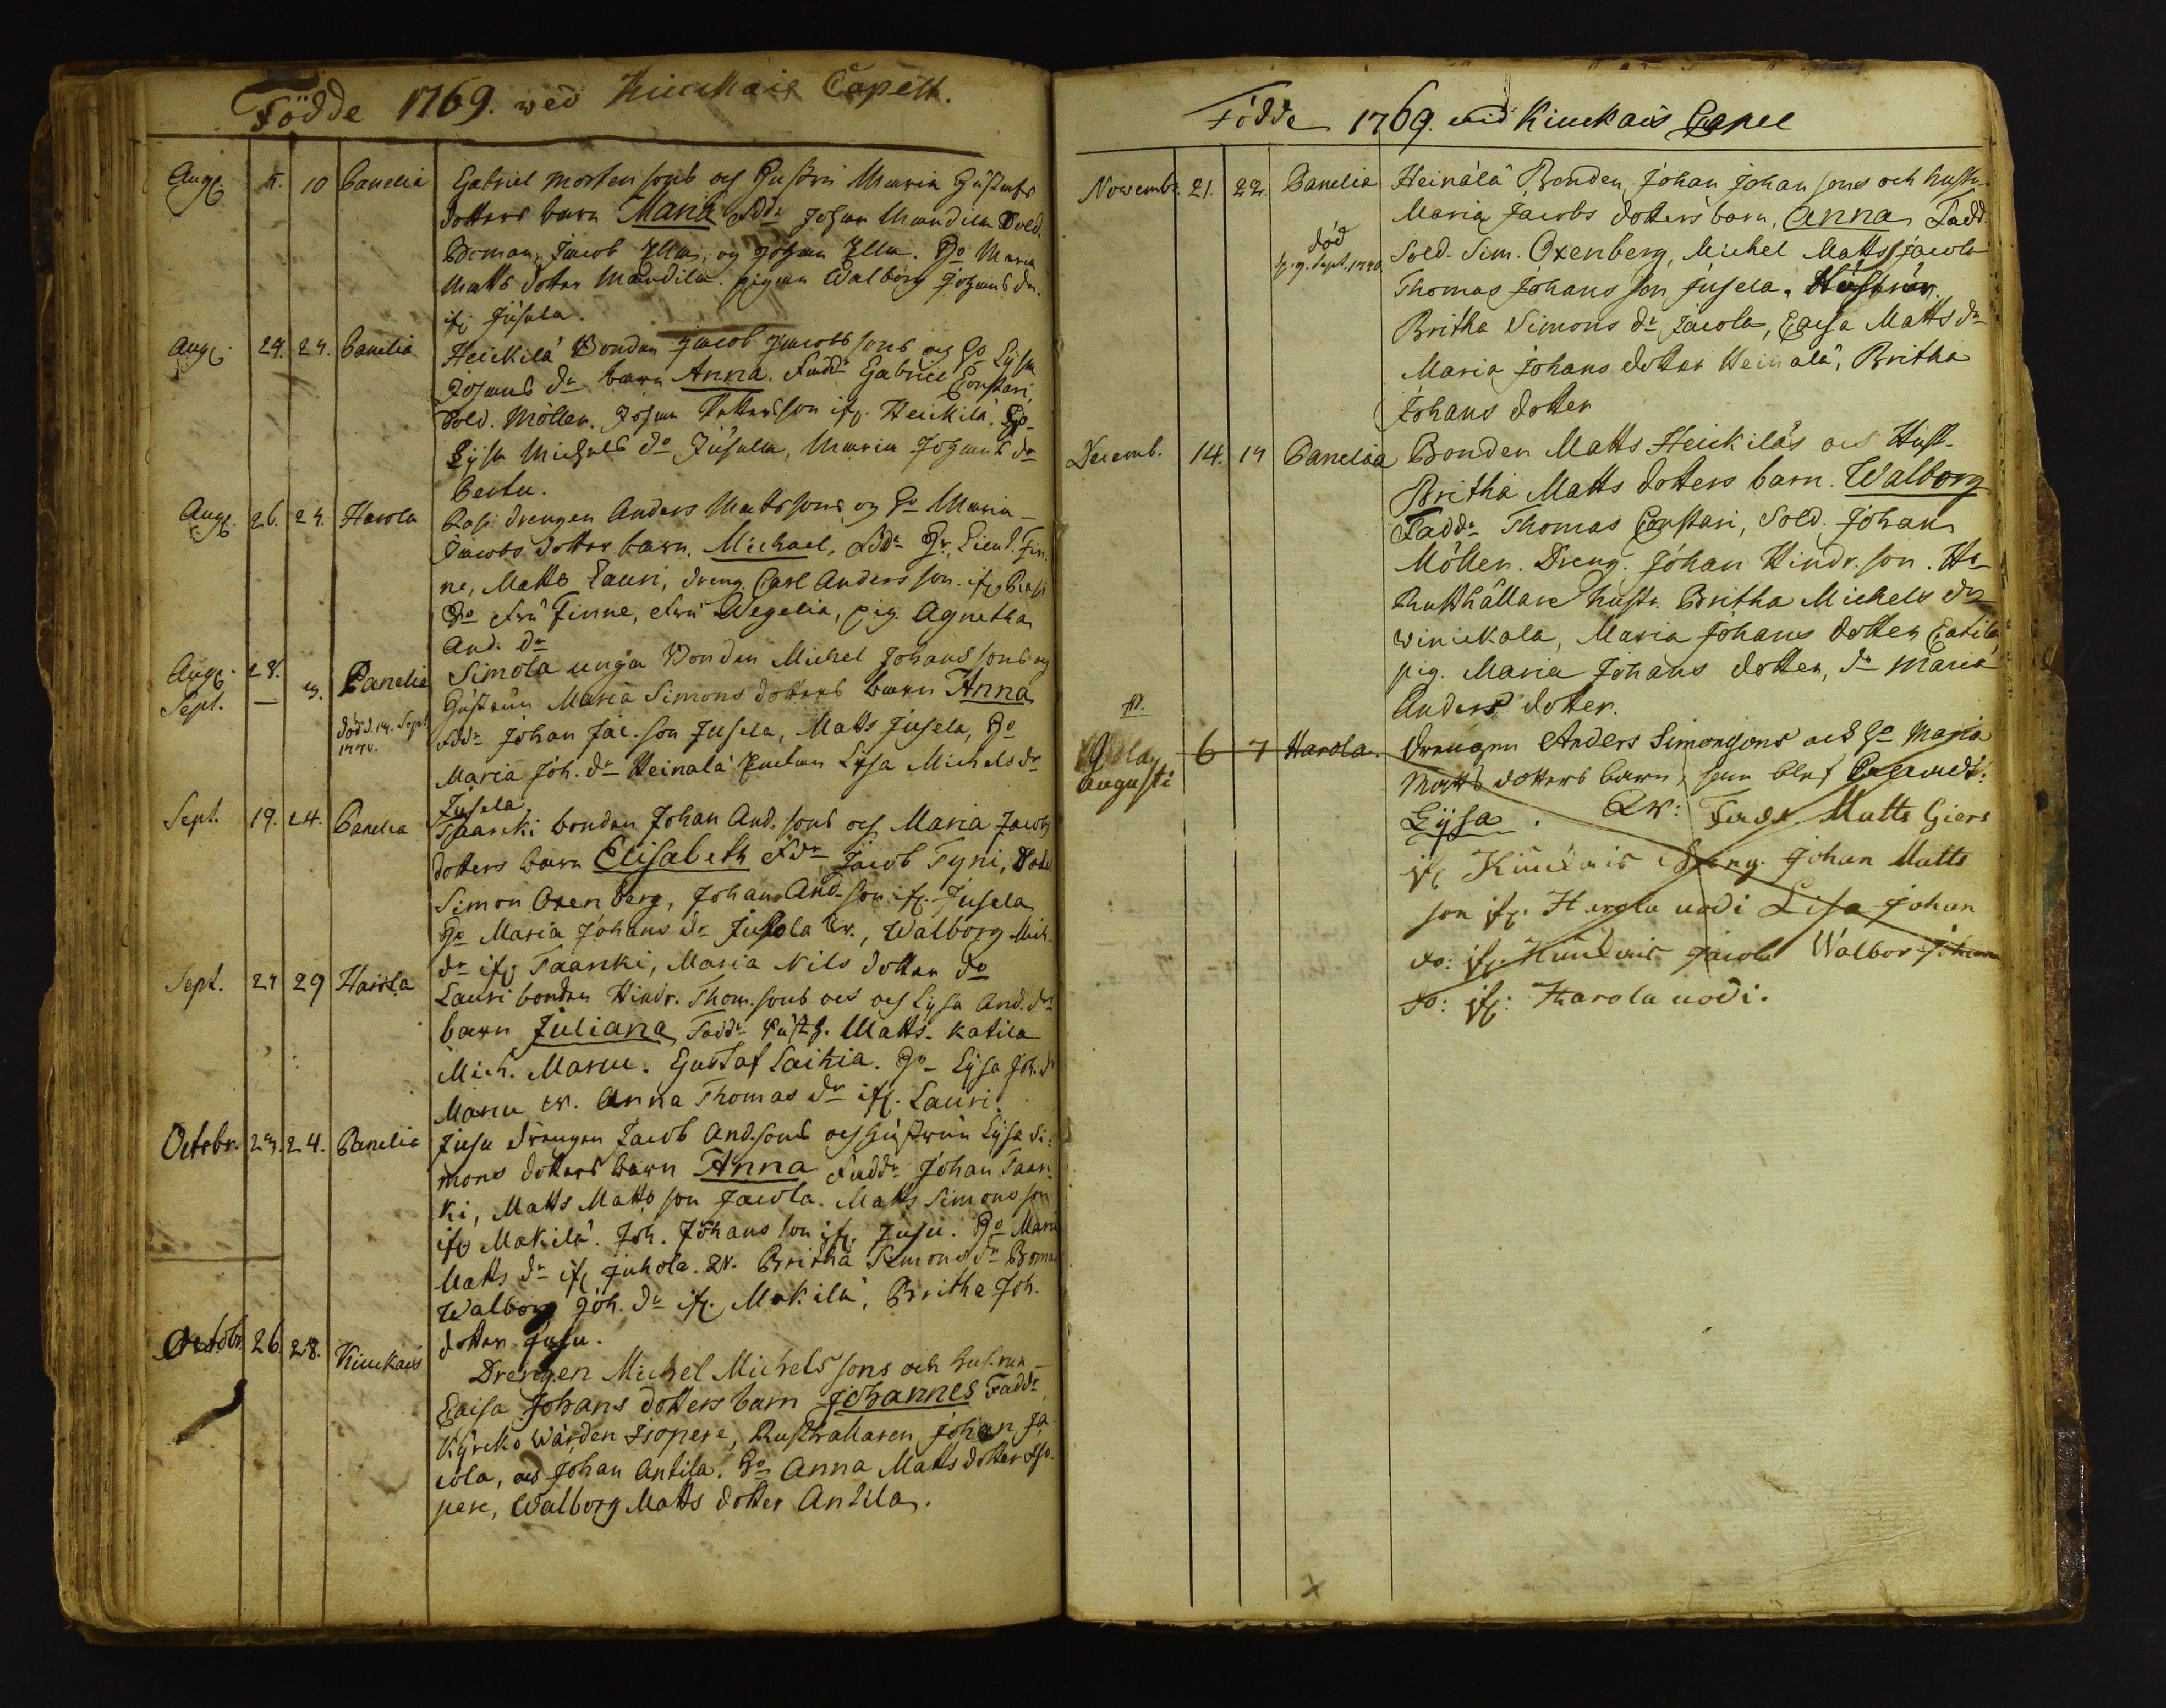 Födde 1769. wed Kiuckais Capell.
Aug. 5. 10 Panelia Gabriel Mortensons och Hustru Maria Gustafs
dotters barn Maria Fddr Johan Mandila Sold.
Boman, Jacob Ella, och Johan Ella. Ho Maria
Matts dotter Mandila. pigan Walborg Johans dr.
ifr. Jusela.
Aug. 24. 24. Panelia Heickilä Bonden Jacob Jacobs sons och Ho Lysa
Johans dr barn Anna. Faddr Gabriel Constari,
Sold. Möller. Johan son ifr. Heickilä. Ho
Lysa Michels dr Jusela, Maria Johans dr
Pertu.
Aug. 26. 27. Harola Rasi drengen Anders Matts sons och Ho Maria
Jacobs dotter barn. Michael, Fddr Hr Lieut. Fin-
ne, Matts Lauri, dreng Carl Anders son. ifr. Rasi
Ho Fru Finne, Fru Wegelia, pig. Agnetha
And. dr
Aug. 28. Simola unga Bonden Michel Johans sons och
Sept. — 3. Panelia Hustrun Maria Simons dotters barn Anna
död d. 14. Sept. 1770. Fddr Johan Jac. son Jusela, Matts Jusela, Ho
Maria Joh. dr Heinala Enckan Lysa Michels dr
Jusela
Sept. 19. 24. Panelia Taanki bonden Johan And. sons och Maria Jacobs
dotters barn Elisabeth Fdr Jacob Tyni, Sold.
Simon Oxenberg, Johan And. son ifr. Jusela
Ho Maria Johans dr Jusola Qv., Walborg Mich.
dr ifr Taanki, Maria Nils dotter do
Sept. 27 29 Harola Lauri bonden Hindr. Thom. sons och Lysa And. dr
barn Juliana Faddr Rusth. Matts. Katila
Mich. Manu. Gustaf Laihia. Ho Lysa Joh. dr
Manu Qv. Anna Thomas dr ifr. Lauri.
Octobr. 23. 24. Panelia Jusu drengen Jacob And. sons och Hustrun Lysa Si-
mons dotters barn Anna Faddr Johan Taan-
ki, Matts Matts son Jacola. Matts Simons son
ifr Makilä. Joh. Johans son ifr. Jusu. Ho Maria
Matts dr ifr Juhola. Qv. Britha Simons dr Boman
Walborg Joh. dr ifr. Makilä, Britha Joh.
dotter Jusu.
Octobr. 26. 28. Kiuckais Drengen Michel Michels sons och hustrun
Caisa Johans dotters barn Johannes Faddr
Kyrcko Wärden Isopere, Rusthållaren Johan Ja-
cola, och Johan Antila. Ho Anna Matts dotter Iso-
pere, Walborg Matts dotter Antila.
Födde 1769. wid Kiuckais Capel
Novemb. 21. 22. Panelia Heinälä Bonden Johan Johan sons och hustr.
Maria Jacobs dotters barn, Anna Fadd
död d. 9. Sept. 1770 Sold. Sim. Oxenberg, Michel Matts Jacola
Thomas Johans son Jusela. Hustrur
Britha Simons dr Jacola, Caisa Matts dr
Maria Johans dotter Heinalä, Britha
Johans dotter
Decemb. 14. 17 Panelia Bonden Matts Heickiläs och Hust.
Britha Matts dotters barn. Walborg
Faddr Thomas Constari, Sold. Johan
Möller. Dreng. Johan Hindr. son. Ho
Rusthållare hustr. Britha Michels dr
winickala, Maria Johans dotter Catila
pig. Maria Johans dotter, dr Maria
Anders dotter.
augusti 6 7 Harola. drengen Anders Simonsons och Ho Maria
Matts dotters barn, som blef
Lysa. Qv: Faddr. Matts Giers
ifr Kiuckais dreng. Johan Matts
son ifr. Harola uodi Lisa Johan
do: ifr. Kiuckais Jacola Walbor Johan
do: ifr: Harola uodi.